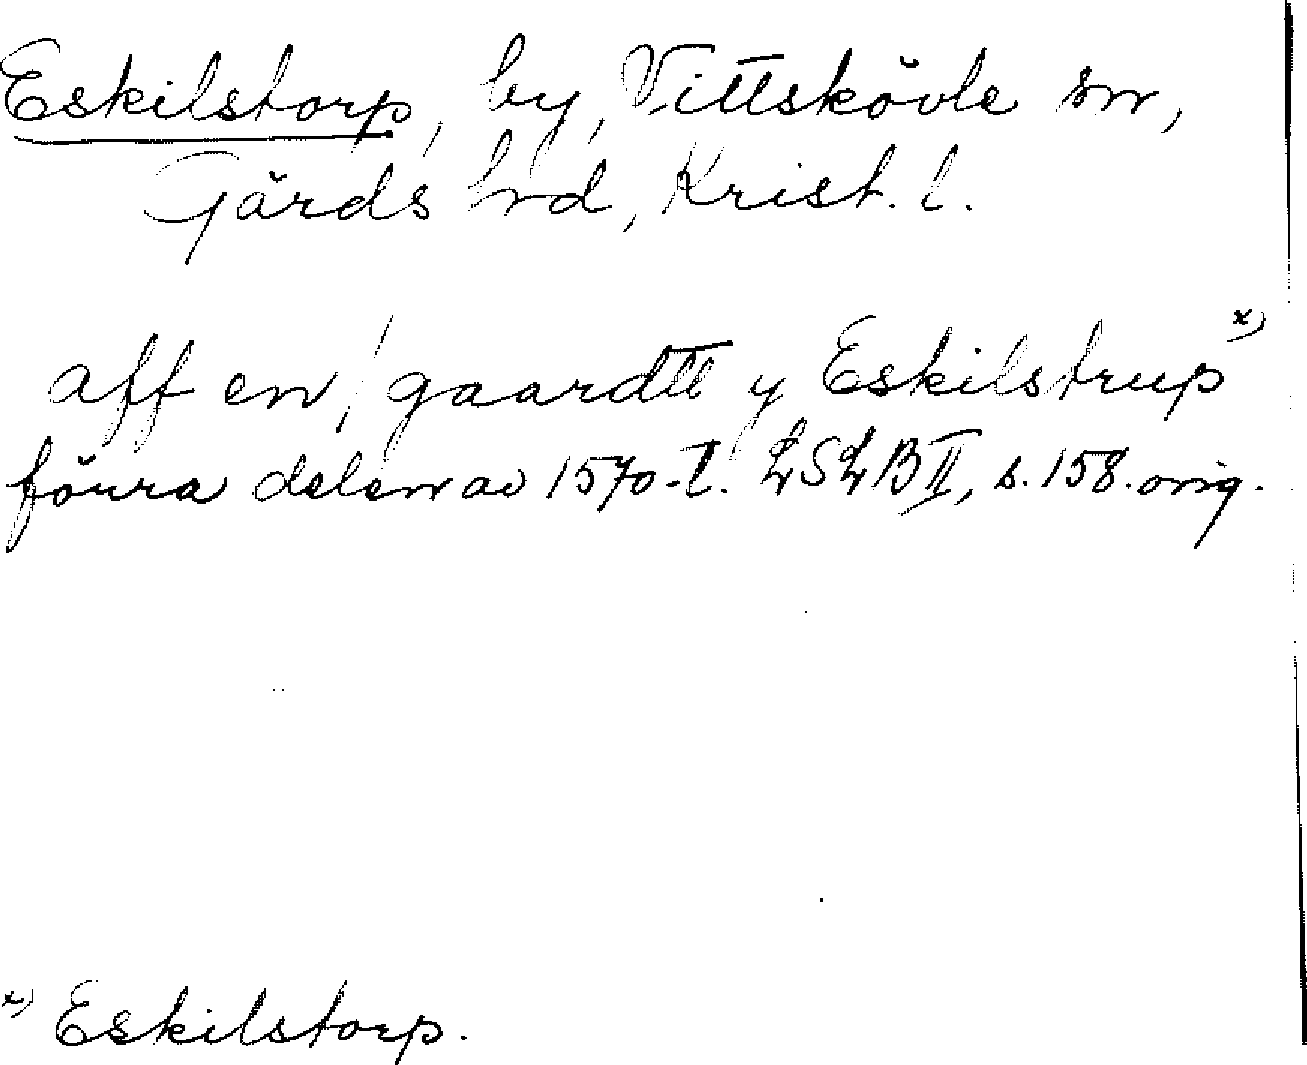 Eskilstorp, by, Vittskövle sn,
Gärds hrd, Krist. l.
aff en / gaardtt y Eskilstrup x)
förra delen av 1570-t. LSLB II, s. 158. orig.
x) Eskilstorp.